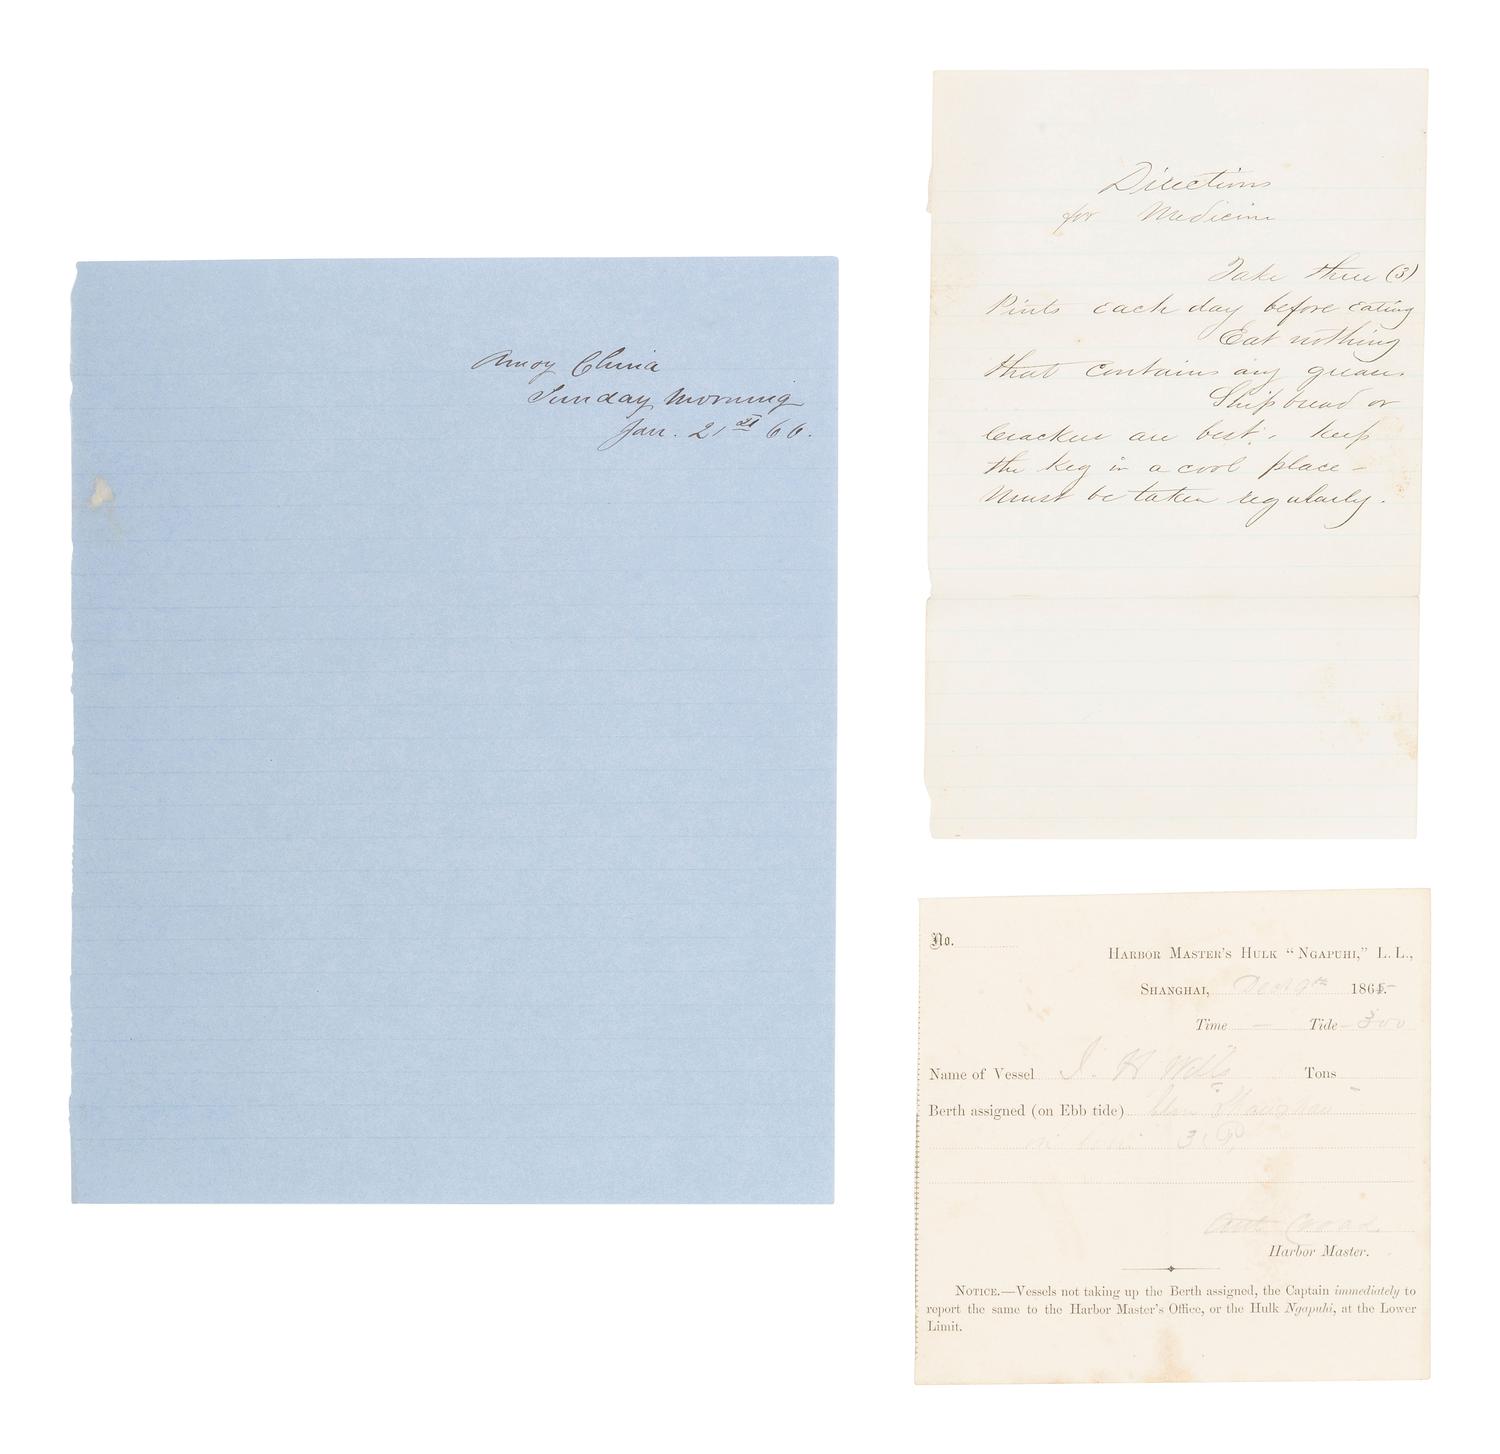 Amoy China
Sunday Morning
Jan. 21st 66.
Directions
for Medicine
Take three (3)
Pints each day before eating
Eat nothing
that contains any grease.
Ship bread or
Crackers are best. keep
the keg in a cool place –
Must be taken regularly.
No.
Harbor Master's Hulk "Ngapuhi," L. L.,
Shanghai, Dec 9th 1865
Time — Tide 300
Name of Vessel J. H Tons
Berth assigned (on Ebb tide)
Harbor Master.
Notice.—Vessels not taking up the Berth assigned, the Captain immediately to
report the same to the Harbor Master's Office, or the Hulk Ngapuhi, at the Lower
Limit.